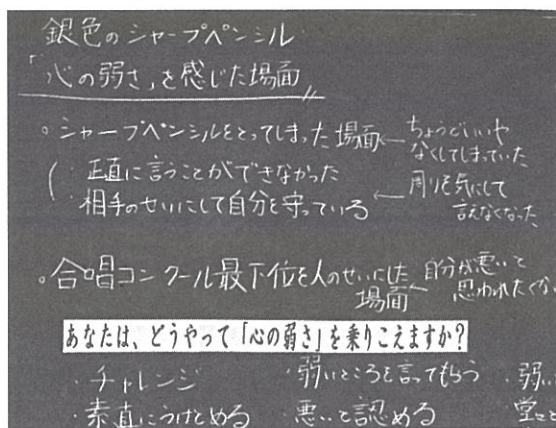 銀色のシャープペンシル
「心の弱さ」を感じた場面
。シャープペンシルをとってしまった場面←ちょうどいいや
なくしてしまっていた
正直に言うことができなかった
相手のせいにして自分を守っている ← 周りを気にして
言えなくなった
。合唱コンクール最下位を人のせいにした
場面 ← 自分が悪いと
思われたくな
あなたは、どうやって「心の弱さ」を乗りこえますか?
・チャレンジ ・弱いところを言ってもらう ・弱い
・素直にうけとめる ・悪いと認める 堂々と